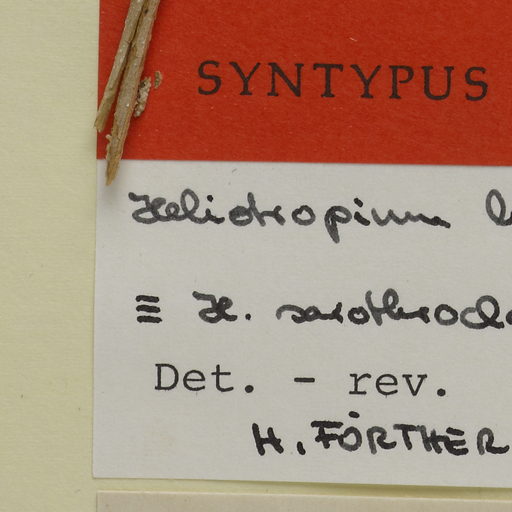 SYNTYPUS
Heliotropium
≡ H.
Det. - rev.
H. FÖRTHER